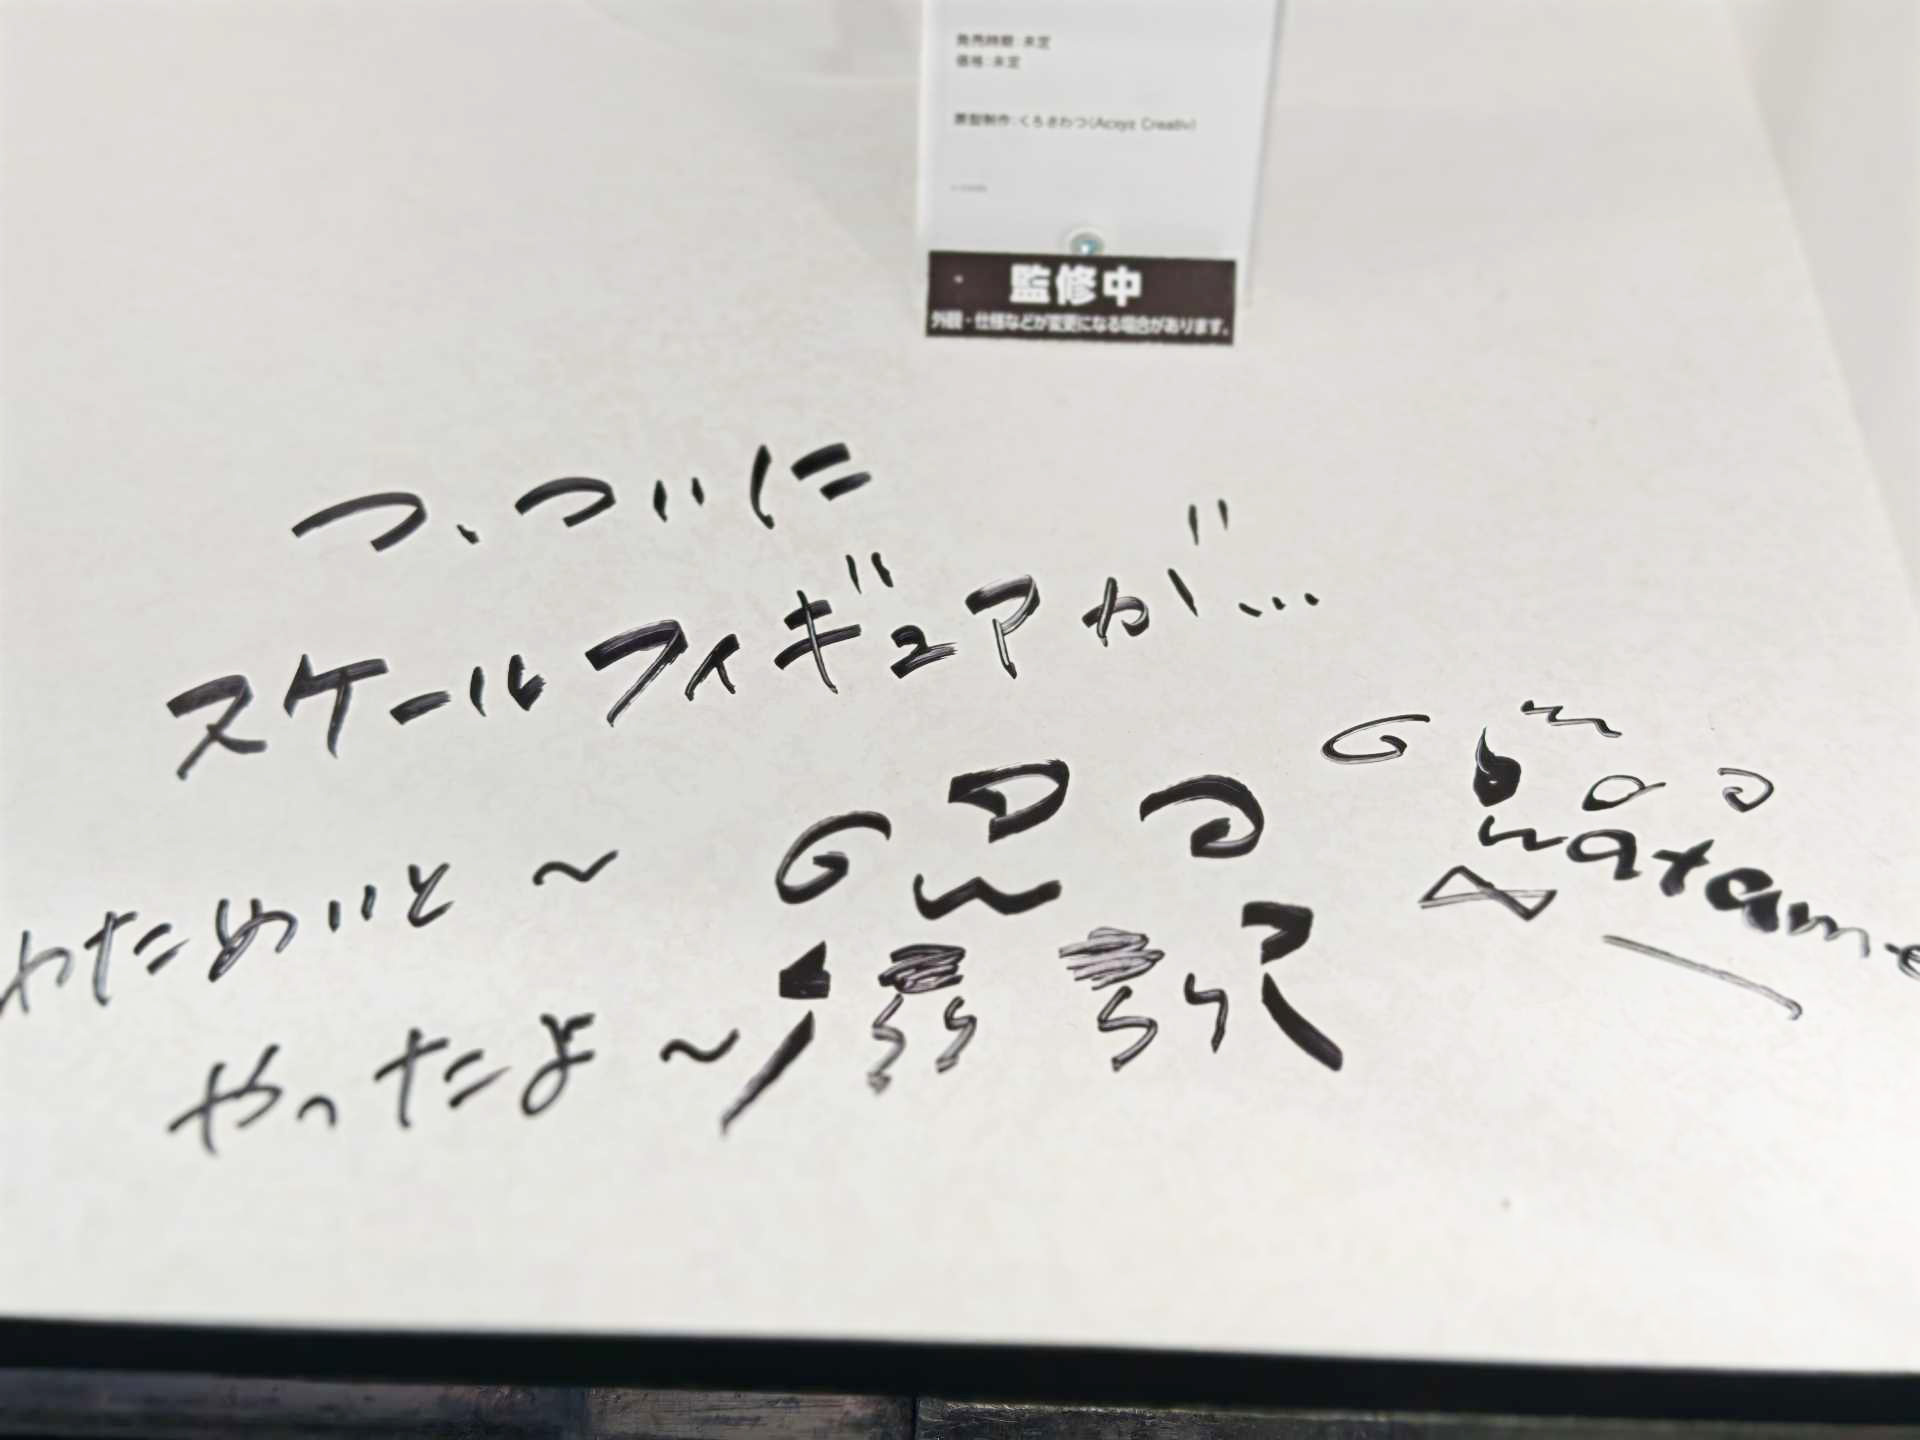 発売時期：未定
価格：未定
原型制作：くろさわつ(Acxyz Creativ)
監修中
外観・仕様などが変更になる場合があります。
つ、ついに
スケールフィギュアが…
わためいと〜
やったよ〜
watame